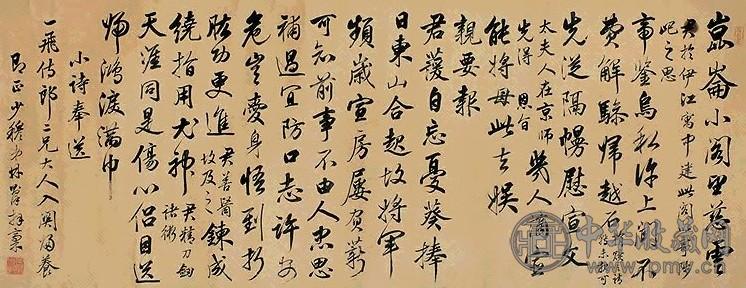 崑崙小閣望慈雲
君於伊江寓中建此閣
屺之思
帝鑒烏私許上聞不
費解驂歸越石
先從隔幌慰宣文
太夫人在京師
先得 恩旨
幾人
能將母此去娛
親要報
君護自忘憂葵捧
日東山合起故將軍
頻歲宣房屢賀薪
可知前事不由人忠思
補過宜防口志許安
危豈愛身悟到折
肱功更進君善醫故及之鍊成
繞指用尤神君精刀劍諸術
天涯同是傷心侶目送
歸鴻淚滿巾
小詩奉送
一飛侍郎二兄大人入關歸養
即正少穆弟林則徐拜稾
中华收藏网